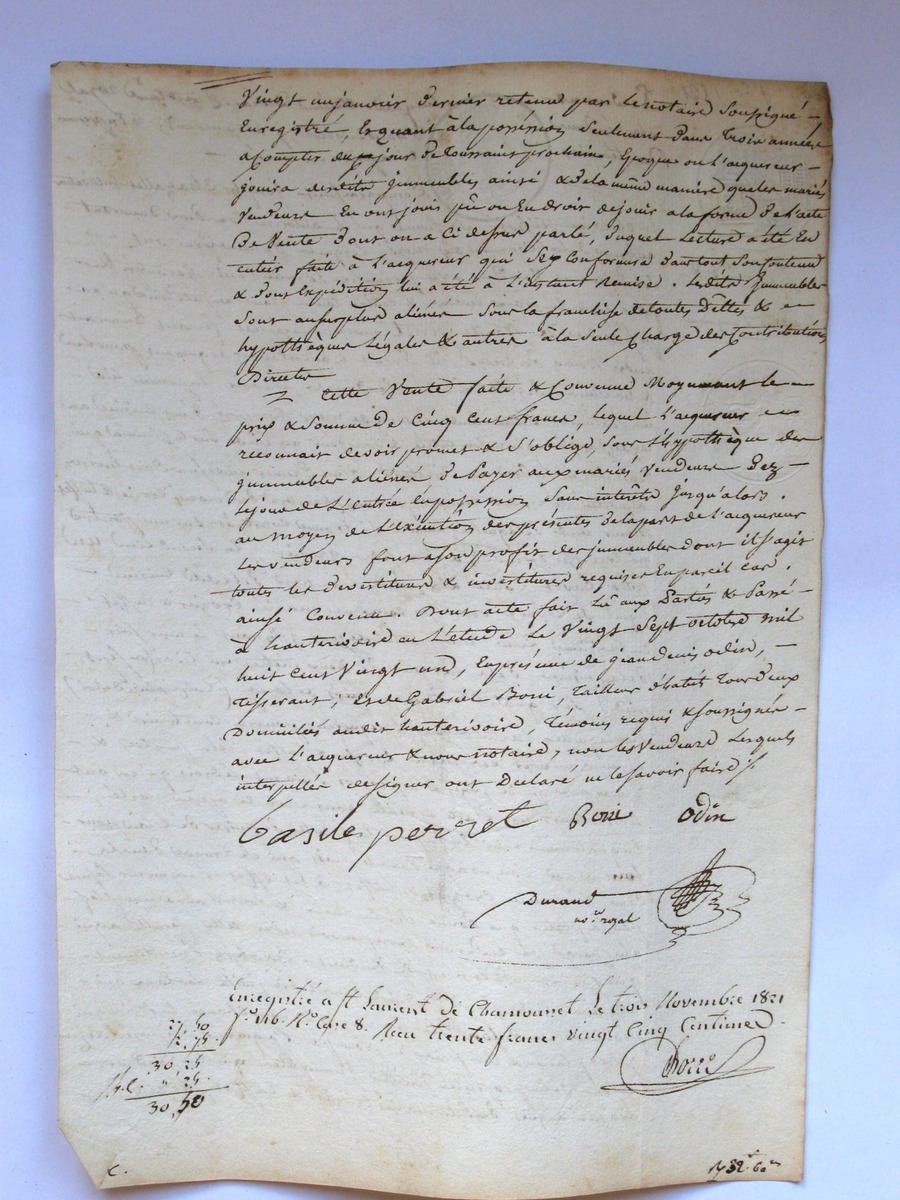 Vingt un janvier dernier retenu par le notaire soussigné
Enregistré, Et quant à la possession seulement dans trois années
a Compter du jour de toussaint prochain, Epoque ou l'acquereur
jouira desdits jmmeubles ainsi & de la même maniere que les mariés
vendeurs En ont joui pû ou Eu droit de jouir a la forme de l'acte
De vente dont on a Ci dessus parlé, duquel lecture a été En
entier faite à l'acquereur qui s'ey Conformera dans tout son contenu
& dont Expédition lui a été à l'instant Remise. lesdits jmmeubles
sont au surplus aliénés sous la franchise de toutes Dêttes &
hypothèques légales & autres à la seule Charge des Contributions
Directes
Cette Vente faite & Convenue Moyennant le
prix & Somme de Cinq Cent francs, lequel l'acquereur
reconnait devoir promet & s'oblige, sous l'hypothèque des
jmmeubles aliénés de Payer auxmariés vendeurs Dez
le jour de l'entrée en possession sans intérêts jusqu'alors.
au moyen de l'exécution des présentes de la part de l'acquereur
les vendeurs font a son profit des jmmeubles dont il s'agit
toutes les devestitures & investitures requises En pareil cas.
ainsi Convenu. Dont acte fait Lû aux Parties & Passé
à hauterivoire en l'etude le Vingt Sept octobre mil
huit Cent Vingt un, En présence de jean denis odin,
Tisserant, Et de Gabriel Borie, Tailleur d'habits tous deux
Domiciliés audit hauterivoire, témoins requis & soussignés
avec l'acquereur & nous notaire, non les vendeurs lesquels
interpellés de signer ont Déclaré ne le savoir faire
basile perret Borie Odin
Durand
no.re royal
Enregistré a St Laurent de Chamousset Le trois Novembre 1821
f.o 116 R.o Case 8. Reçu trente francs vingt Cinq Centimes
27,50
2,75
30,25
" 25
30,50